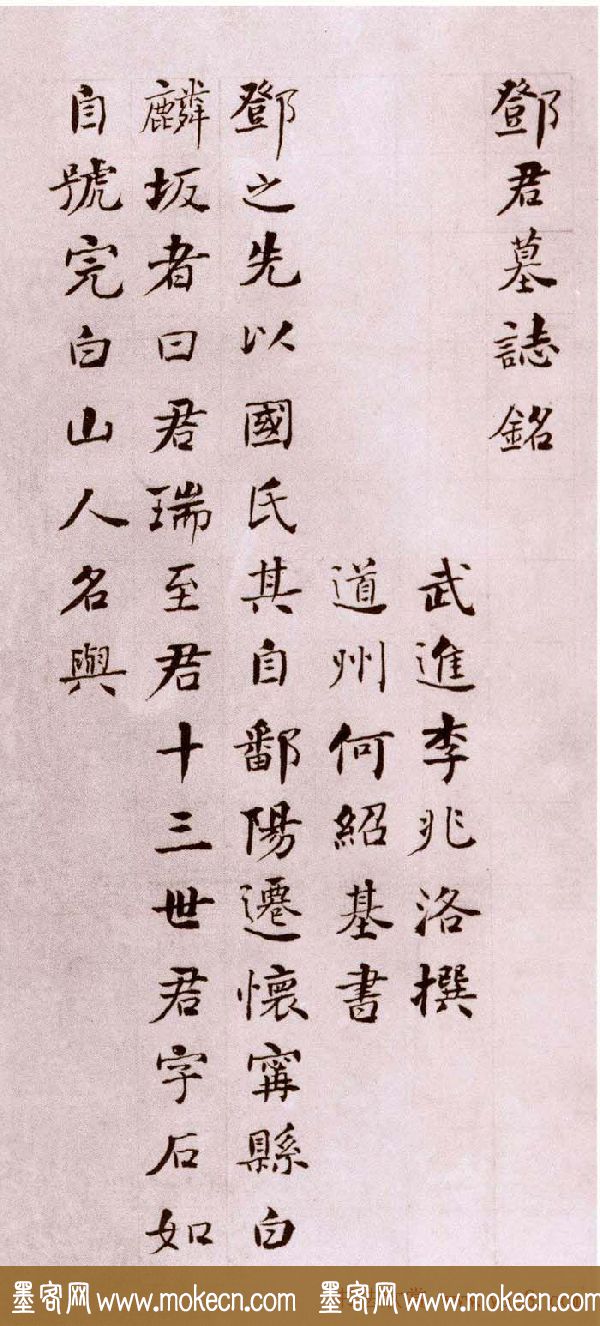 鄧君墓誌銘
武進李兆洛撰
道州何紹基書
鄧之先以國氏其自鄱陽遷懷甯縣白
麟坂者曰君瑞至君十三世君字石如
自號完白山人名與
墨客网 www.mokecn.com 墨客网 www.mokecn.com